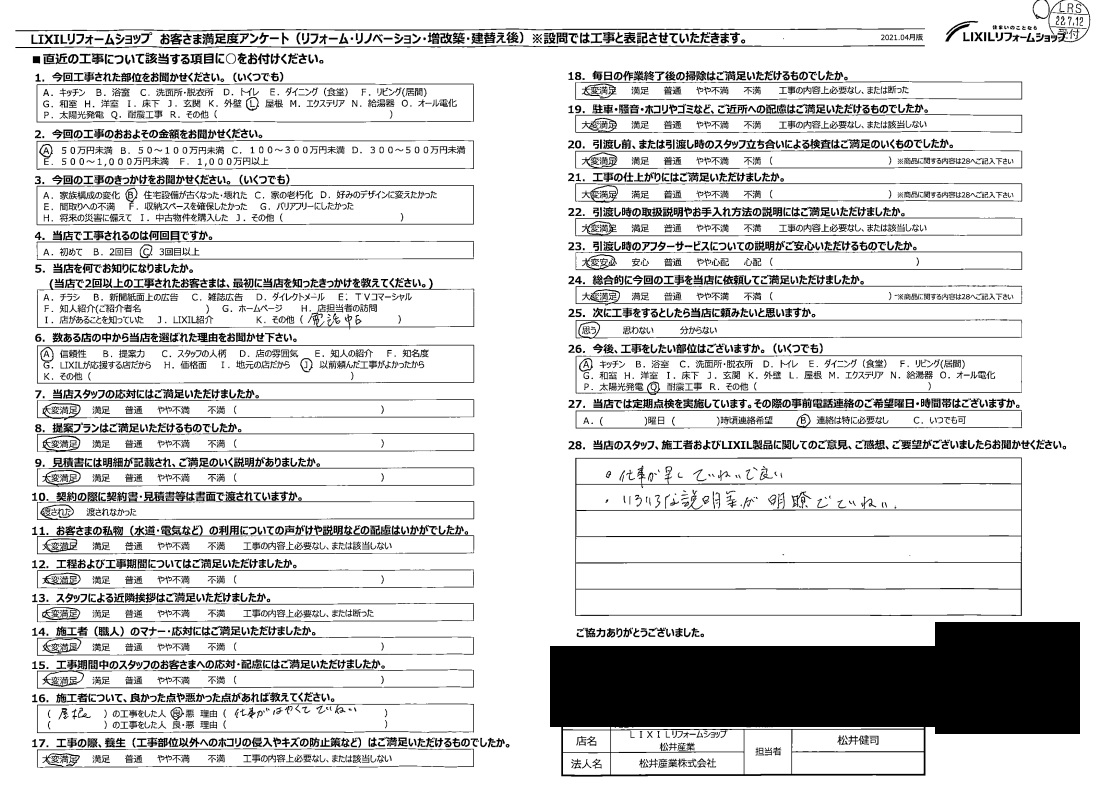 LIXILリフォームショップ お客さま満足度アンケート（リフォーム・リノベーション・増改築・建替え後）※設問では工事と表記させていただきます。
2021.04月版
住まいのことなら
LIXILリフォームショップ
LRS
22.7.12
受付
■直近の工事について該当する項目に○をお付けください。
1．今回工事された部位をお聞かせください。（いくつでも）
A．キッチン B．浴室 C．洗面所・脱衣所 D．トイレ E．ダイニング（食堂） F．リビング(居間)
G．和室 H．洋室 I．床下 J．玄関 K．外壁 L．屋根 M．エクステリア N．給湯器 O．オール電化
P．太陽光発電 Q．耐震工事 R．その他（ ）
2．今回の工事のおおよその金額をお聞かせください。
A．50万円未満 B．50～100万円未満 C．100～300万円未満 D．300～500万円未満
E．500～1,000万円未満 F．1,000万円以上
3．今回の工事のきっかけをお聞かせください。（いくつでも）
A．家族構成の変化 B．住宅設備が古くなった・壊れた C．家の老朽化 D．好みのデザインに変えたかった
E．間取りへの不満 F．収納スペースを確保したかった G．バリアフリーにしたかった
H．将来の災害に備えて I．中古物件を購入した J．その他（ ）
4．当店で工事されるのは何回目ですか。
A．初めて B．2回目 C．3回目以上
5．当店を何でお知りになりましたか。
（当店で2回以上の工事されたお客さまは、最初に当店を知ったきっかけを教えてください。）
A．チラシ B．新聞紙面上の広告 C．雑誌広告 D．ダイレクトメール E．TVコマーシャル
F．知人紹介(ご紹介者名 ) G．ホームページ H．店担当者の訪問
I．店があることを知っていた J．LIXIL紹介 K．その他（ 電話中古 ）
6．数ある店の中から当店を選ばれた理由をお聞かせ下さい。
A．信頼性 B．提案力 C．スタッフの人柄 D．店の雰囲気 E．知人の紹介 F．知名度
G．LIXILが応援する店だから H．価格面 I．地元の店だから J．以前頼んだ工事がよかったから
K．その他（ ）
7．当店スタッフの応対にはご満足いただけましたか。
大変満足 満足 普通 やや不満 不満（ ）
8．提案プランはご満足いただけるものでしたか。
大変満足 満足 普通 やや不満 不満（ ）
9．見積書には明細が記載され、ご満足のいく説明がありましたか。
大変満足 満足 普通 やや不満 不満（ ）
10．契約の際に契約書・見積書等は書面で渡されていますか。
渡された 渡されなかった
11．お客さまの私物（水道・電気など）の利用についての声がけや説明などの配慮はいかがでしたか。
大変満足 満足 普通 やや不満 不満 工事の内容上必要なし、または該当しない
12．工程および工事期間についてはご満足いただけましたか。
大変満足 満足 普通 やや不満 不満（ ）
13．スタッフによる近隣挨拶はご満足いただけましたか。
大変満足 満足 普通 やや不満 不満 工事の内容上必要なし、または断った
14．施工者（職人）のマナー・応対にはご満足いただけましたか。
大変満足 満足 普通 やや不満 不満（ ）
15．工事期間中のスタッフのお客さまへの応対・配慮にはご満足いただけましたか。
大変満足 満足 普通 やや不満 不満（ ）
16．施工者について、良かった点や悪かった点があれば教えてください。
（ 屋根 ）の工事をした人 良・悪 理由（ 仕事がはやくてていねい ）
（ ）の工事をした人 良・悪 理由（ ）
17．工事の際、養生（工事部位以外へのホコリの侵入やキズの防止策など）はご満足いただけるものでしたか。
大変満足 満足 普通 やや不満 不満 工事の内容上必要なし、または該当しない
18．毎日の作業終了後の掃除はご満足いただけるものでしたか。
大変満足 満足 普通 やや不満 不満 工事の内容上必要なし、または断った
19．駐車・騒音・ホコリやゴミなど、ご近所への配慮はご満足いただけるものでしたか。
大変満足 満足 普通 やや不満 不満 工事の内容上必要なし、または該当しない
20．引渡し前、または引渡し時のスタッフ立ち合いによる検査はご満足のいくものでしたか。
大変満足 満足 普通 やや不満 不満（ ）※商品に関する内容は28へご記入下さい
21．工事の仕上がりにはご満足いただけましたか。
大変満足 満足 普通 やや不満 不満（ ）※商品に関する内容は28へご記入下さい
22．引渡し時の取扱説明やお手入れ方法の説明にはご満足いただけましたか。
大変満足 満足 普通 やや不満 不満 工事の内容上必要なし、または該当しない
23．引渡し時のアフターサービスについての説明がご安心いただけるものでしたか。
大変安心 安心 普通 やや心配 心配（ ）
24．総合的に今回の工事を当店に依頼してご満足いただけましたか。
大変満足 満足 普通 やや不満 不満（ ）※商品に関する内容は28へご記入下さい
25．次に工事をするとしたら当店に頼みたいと思いますか。
思う 思わない 分からない
26．今後、工事をしたい部位はございますか。（いくつでも）
A．キッチン B．浴室 C．洗面所・脱衣所 D．トイレ E．ダイニング（食堂） F．リビング(居間)
G．和室 H．洋室 I．床下 J．玄関 K．外壁 L．屋根 M．エクステリア N．給湯器 O．オール電化
P．太陽光発電 Q．耐震工事 R．その他（ ）
27．当店では定期点検を実施しています。その際の事前電話連絡のご希望曜日・時間帯はございますか。
A．（ ）曜日（ ）時頃連絡希望 B．連絡は特に必要なし C．いつでも可
28．当店のスタッフ、施工者およびLIXIL製品に関してのご意見、ご感想、ご要望がございましたらお聞かせください。
・仕事が早くていねいで良い
・いろいろな説明等が明瞭でていねい.
ご協力ありがとうございました。
店名 LIXILリフォームショップ 松井産業 担当者 松井健司
法人名 松井産業株式会社